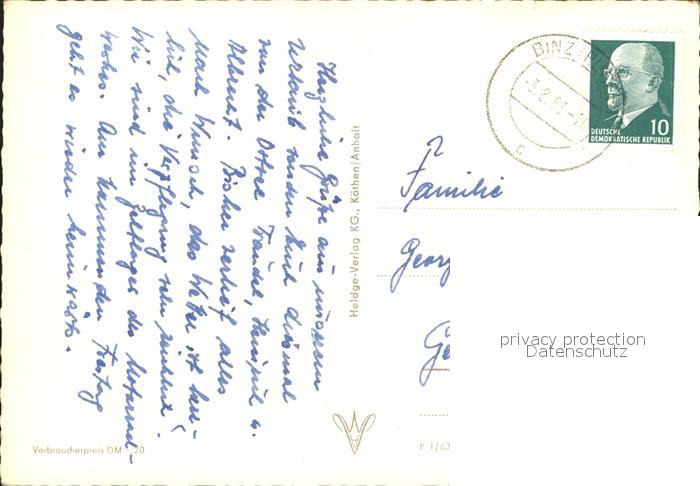 Herzliche Grüße aus unserem
Urlaub senden Euch diesmal
von der Ostsee Traudel, u.
Albrecht. Bisher verlief alles
nach Wunsch, das Wetter ist herr-
lich, die Verpflegung sehr
Wir sind im Zeltlager des Motorrad-
Am kommenden Freitag
geht es wieder heimwärts.
Heldge-Verlag KG., Köthen/Anhalt
BINZ
10
DEUTSCHE
DEMOKRATISCHE REPUBLIK
c
Familie
Georg
Ge
privacy protection
Datenschutz
Verbraucherpreis DM
P 1/63